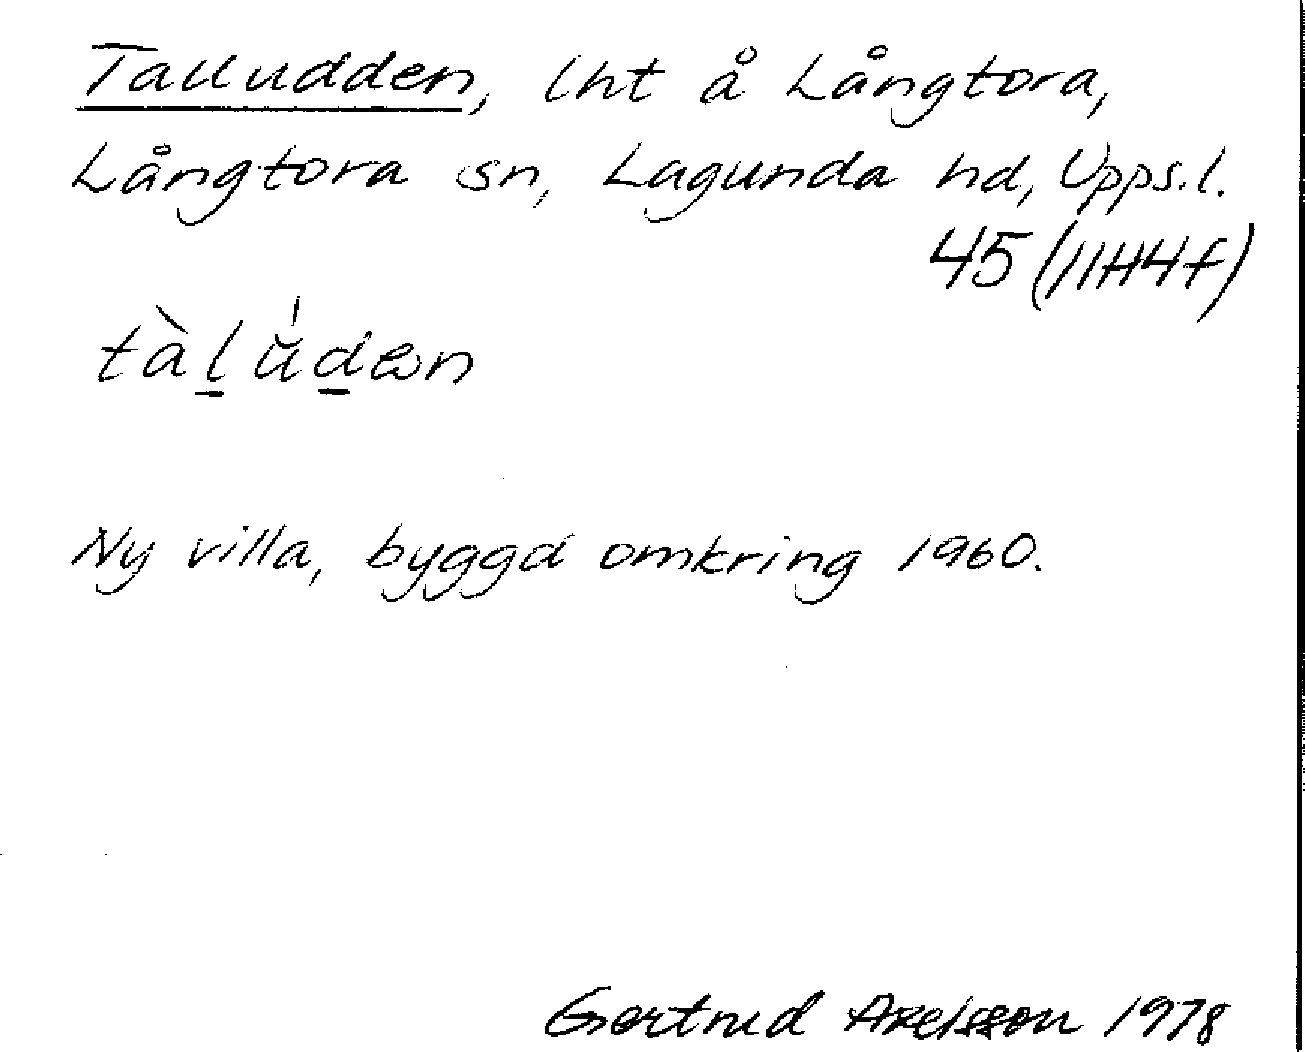 Talludden, lht å Långtora,
Långtora sn, Lagunda hd, Upps.l.
45 (11H4f)
tàl̲ŭ́d̲ən
Ny villa, byggd omkring 1960.
Gertrud Axelsson 1978